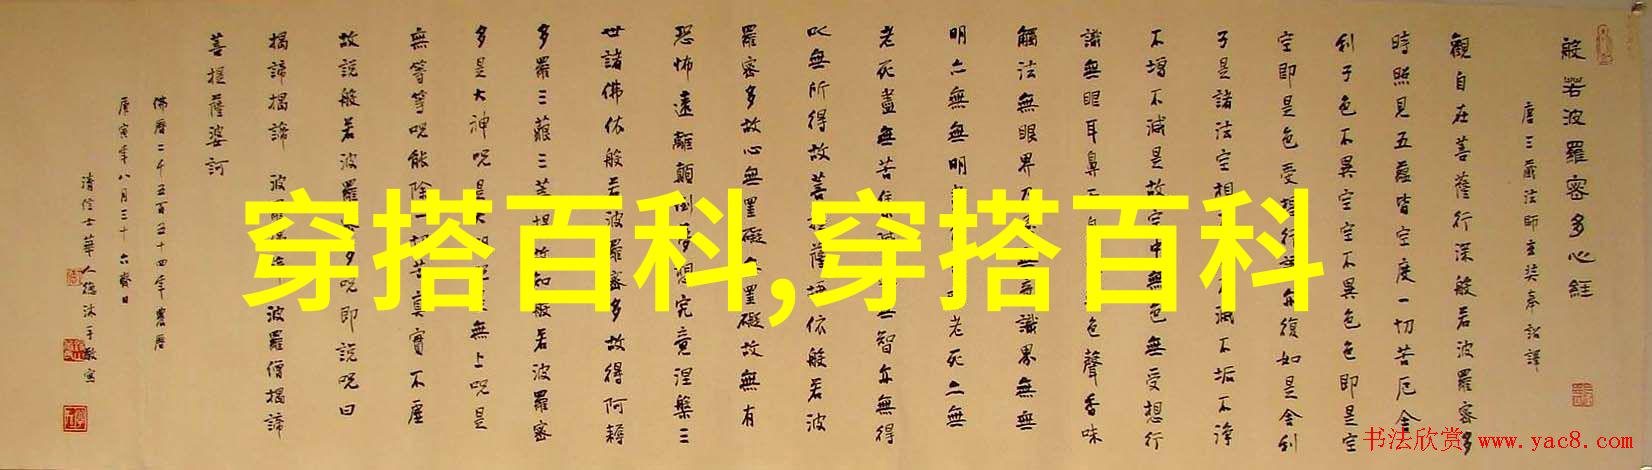 般若波羅密多心経
唐三藏法師玄奘奉詔譯
觀自在菩薩行深般若波羅密多
時照見五蘊皆空度一切苦厄舍
利子色不異空空不異色色即是空
空即是色受想行亦復如是舍利
子是諸法空相滅不垢不淨
不增不減是故空中無色無受想行
識無眼耳鼻色聲香味
觸法無眼界乃識界無無
明亦無無明老死亦無
老死盡無苦集無智亦無得
以無所得故菩薩埵依般若波
羅密多故心無罣礙無罣礙故無有
恐怖遠離顛倒夢想究竟涅槃三
世諸佛依般若波羅密多故得阿耨
多羅三藐三菩提故知般若波羅密
多是大神呪是大無上呪是
無等等呪能除一切苦真實不虛
故說般若波羅密多呪即說呪曰
揭諦揭諦 波羅揭諦 波羅僧揭諦
菩提薩婆訶
佛曆二千五百五十四年農曆
庚寅年八月三十六齋日
清信士華人德沐手敬寫
穿搭百科,穿搭百科
书法欣赏 www.yac8.com